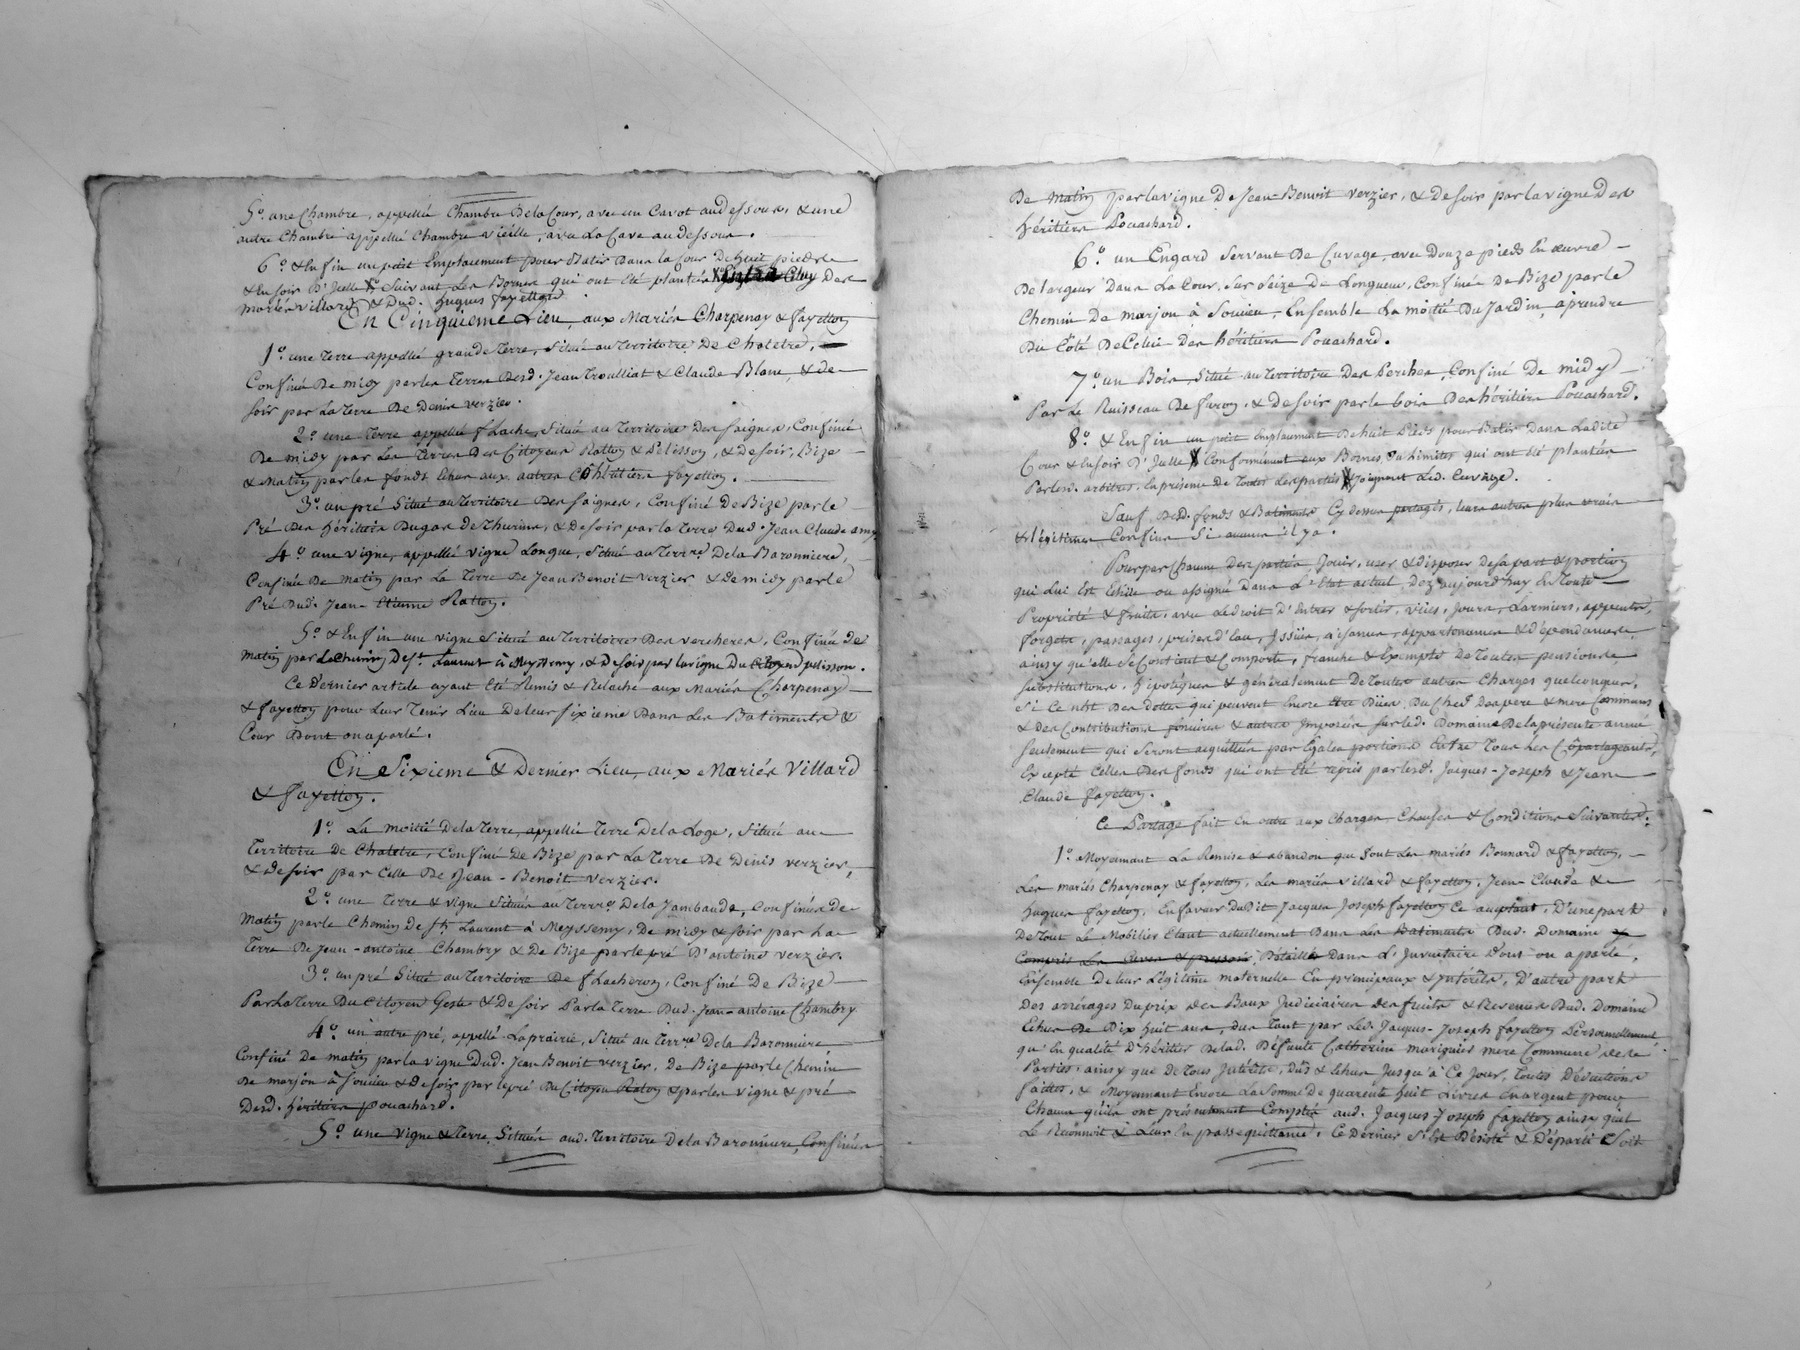 5.o une Chambre, appellée Chambre De la Cour, avec un Cavot au dessous, & une
autre Chambre appellée Chambre vieille, avec La Cave au dessous.
6.o & Enfin un petit Emplacement pour Batir Dans la Cour de huit pieds
& Ensoir D'Icelle Suivant Les Bornes qui ont été plantés Des
Mariés Villard & Dud. hugues fayetton
En Cinquieme Lieu, aux Mariés Charpenay & fayetton
1.o une Terre appellée grande Terre, Située au Territoire De Chatelre,
Confiné De midy par les Terres Desd. Jean Troulliat & Claude Blanc, & de
soir par La Terre De Denis verzier.
2.o une Terre appellée f Lache, Située au Territoire Des Saignes, Confinée
De midy par Les Terres Des Citoyens Ratton & Pelisson, & De soir, Bize
& Matin par les fonds Echus aux autres Cohéritiers fayetton.
3.o un pré Situé au Territoire Des Saignes, Confiné De Bize par le
Pré Des héritiers Dugas de Thurins, & De soir par la Terre Dud. Jean Claude amy
4.o une vigne, appellée vigne Longue, Située au Terrre De la Baronniere,
Confinée De matin par La Terre De Jean Benoit verzier & de midy par le
Pré Dud. Jean-Etienne Ratton.
5.o & Enfin une vigne Située au Territoire Des vercheres, Confinée de
Matin par Le Chemin De S.t Laurent à Meyssemy, & De soir par la vigne Du Citoyen pelisson.
Ce Dernier article ayant été Remis & Relaché aux Mariés Charpenay
& fayetton pour Leur Tenir Lieu De leur sixieme Dans Les Batiments &
Cour Dont on a parlé.
En Sixieme & Dernier Lieu, aux Mariés Villard
& fayetton.
1.o La moitié De la Terre, appellée Terre De la Loge, Située au
Territoire De Chatelre, Confiné De Bize par La Terre De Denis verzier,
& De soir par Celle De Jean-Benoit verzier.
2.o une Terre & vigne Située au Terrre De la Jambaude, Confinée de
Matin par le Chemin De st Laurent à Meyssemy, De midy & soir par La
Terre De Jean-antoine Chambry & De Bize par le pré D'antoine verzier.
3.o un pré Situé au Territoire De f Lacheron, Confiné De Bize
Par La Terre Du Citoyen Geste & De soir Par la Terre Dud. Jean-antoine Chambry
4.o un autre pré, appellé La prairie, Situé au Terrre De la Baronniere
Confiné De matin par la vigne Dud. Jean Benoit verzier, De Bize par le Chemin
De marjon à Soucieu & De soir par le pré Du Citoyen Raton & par les vigne & pré
Desd. héritiers pouachard.
5.o une vigne & Terre, Située aud. Territoire De la Baronniere, Confinée
De Matin par la vigne De Jean-Benoit verzier, & De soir par la vigne Des
héritiers Pouachard.
6.o un Engard Servant De Cuvage, avec Douze pieds En œuvre
De largeur Dans La Cour, Sur Seize De Longueur, Confiné De Bize par le
Chemin De marjon à Soucieu, Ensemble La moitié Du Jardin, aprendre
Du Côté De Celui Des héritiers Pouachard.
7.o un Bois, Situé au Territoire Des Perches, Confiné De midy
Par Le Ruisseau De furon, & De soir par le bois Des héritiers Pouachard.
8.o & Enfin un petit Emplacement De huit Pieds pour Batir Dans Ladite
Cour & Ensoir D'Icelle Conformément aux Bornes Ou Limites qui ont été plantées
Par Lesd. arbitres, En présence De Toutes Les parties & Joignant Led. Cuvage.
Sauf Desd. fonds & Batiments Cy dessus partagés, leurs autres plus vrais
& légitimes Confins Si aucuns il y a.
Pour par Chacune Des parties Jouir, user & disposer De sa part & portion
qui Lui Est Echue ou assignée Dans L'Etat actuel, Dez aujourd'huy En Toute
Propriété & fruits, avec Le droit D'Entrer & sortir, vües, Jours, Larmiers, appents,
forgets, passages, prises d'eau, Issües, aisances, appartenances & dépendances,
ainsy qu'elle Se Contient & Comporte, franche & Exempte De Toutes pensions,
Substitutions, hipotèques & généralement De Toutes autres Charges quelconques,
Si Ce n'est Des Dettes qui peuvent Encore être Dües Du Chef Des pere & mere Communs
& Des Contributions foncieres & autres Imposées Sur led. Domaine De la présente année
Seulement qui Seront acquittées par Egales portions Entre Tous Les Copartageants,
Excepté Celles Des fonds qui ont été repris par lesd. Jacques-Joseph & Jean
Claude fayetton.
Ce Partage fait En outre aux Charges, Clauses & Conditions Suivantes:
1.o Moyennant La Remise & abandon que font Les mariés Bonnard & fayetton,
Les mariés Charpenay & fayetton, Les mariés Villard & fayetton, Jean-Claude &
hugues fayetton, En faveur Dudit Jacques Joseph fayetton Ce acceptant, D'une part
De Tout Le Mobilier Etant actuellement Dans Les Batiments Dud. Domaine
Compris Les Cuves & pressoir, Détaillé Dans L'Inventaire Dont on a parlé,
Ensemble De leur Légitime maternelle En principaux & Intérêts, D'autre part
Des arrérages Du prix Des Baux Judiciaires Des fruits & Revenus Dud. Domaine
Echus De Dix huit ans, dus Tant par Led. Jacques-Joseph fayetton Personnellement
qu'En qualité D'héritier De lad. Défunte Catherine mere Commune De
Parties, ainsy que De Tous Intérêts, Dus & Echus Jusqu'à Ce Jour, Toutes Déductions
faittes, & Moyennant Encore La Somme De quarente huit Livres En argent pour
Chacun qu'ils ont présentement Compté aud. Jacques-Joseph fayetton ainsy qu'il
Le Reconnoit & Leur En passe quittance, Ce Dernier S'Est Désisté & Départi Soit